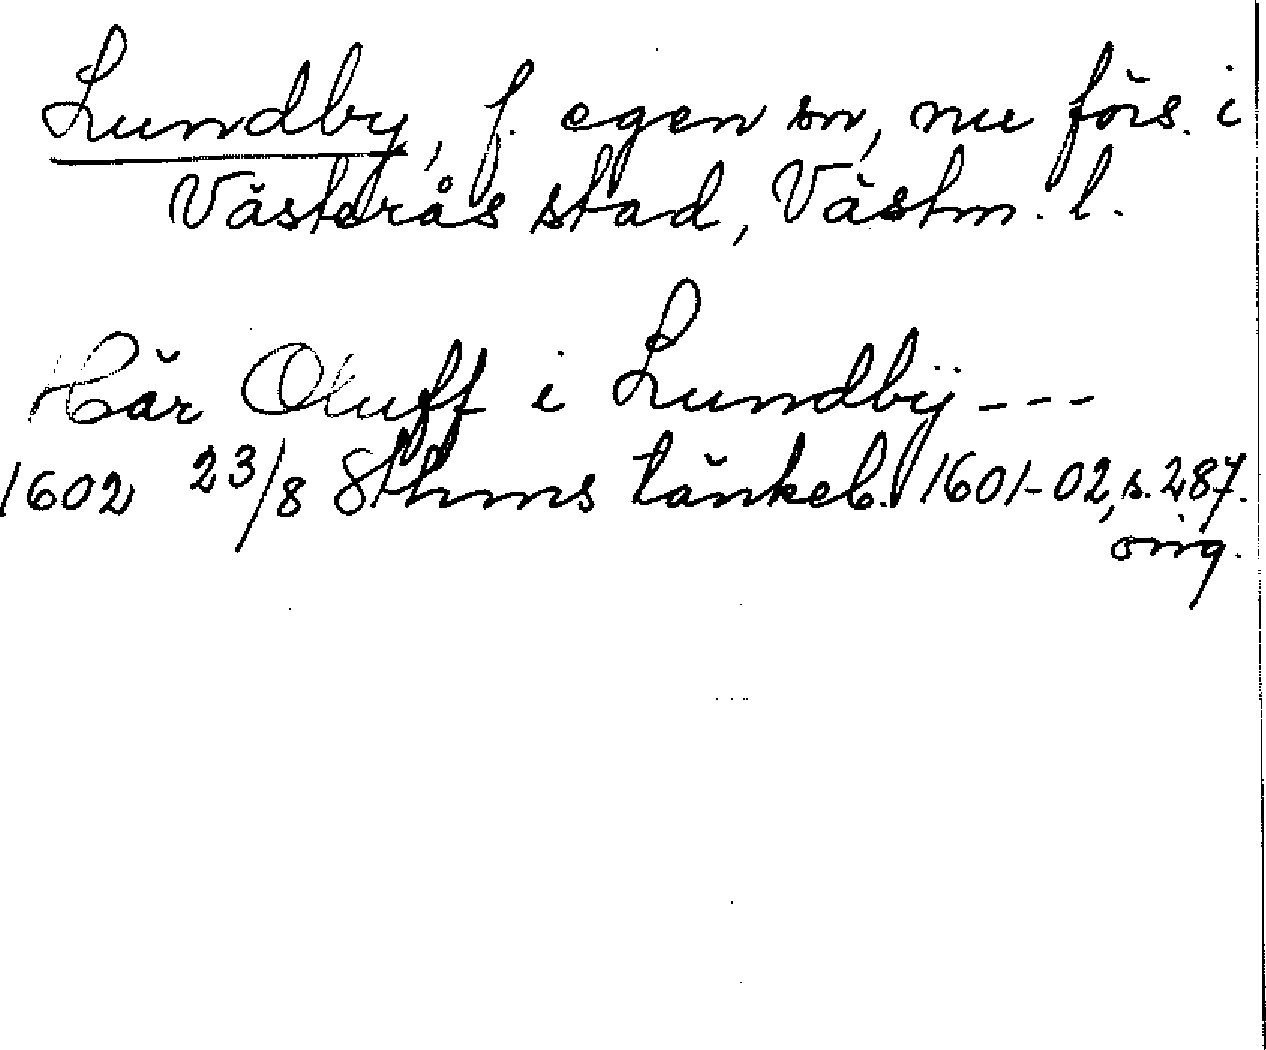 Lundby, f. egen sn, nu förs. i
Västerås stad, Västm. l.
Här Oluff i Lundbÿ ---
1602 23/8 Sthms tänkeb. 1601-02, s. 287.
orig.